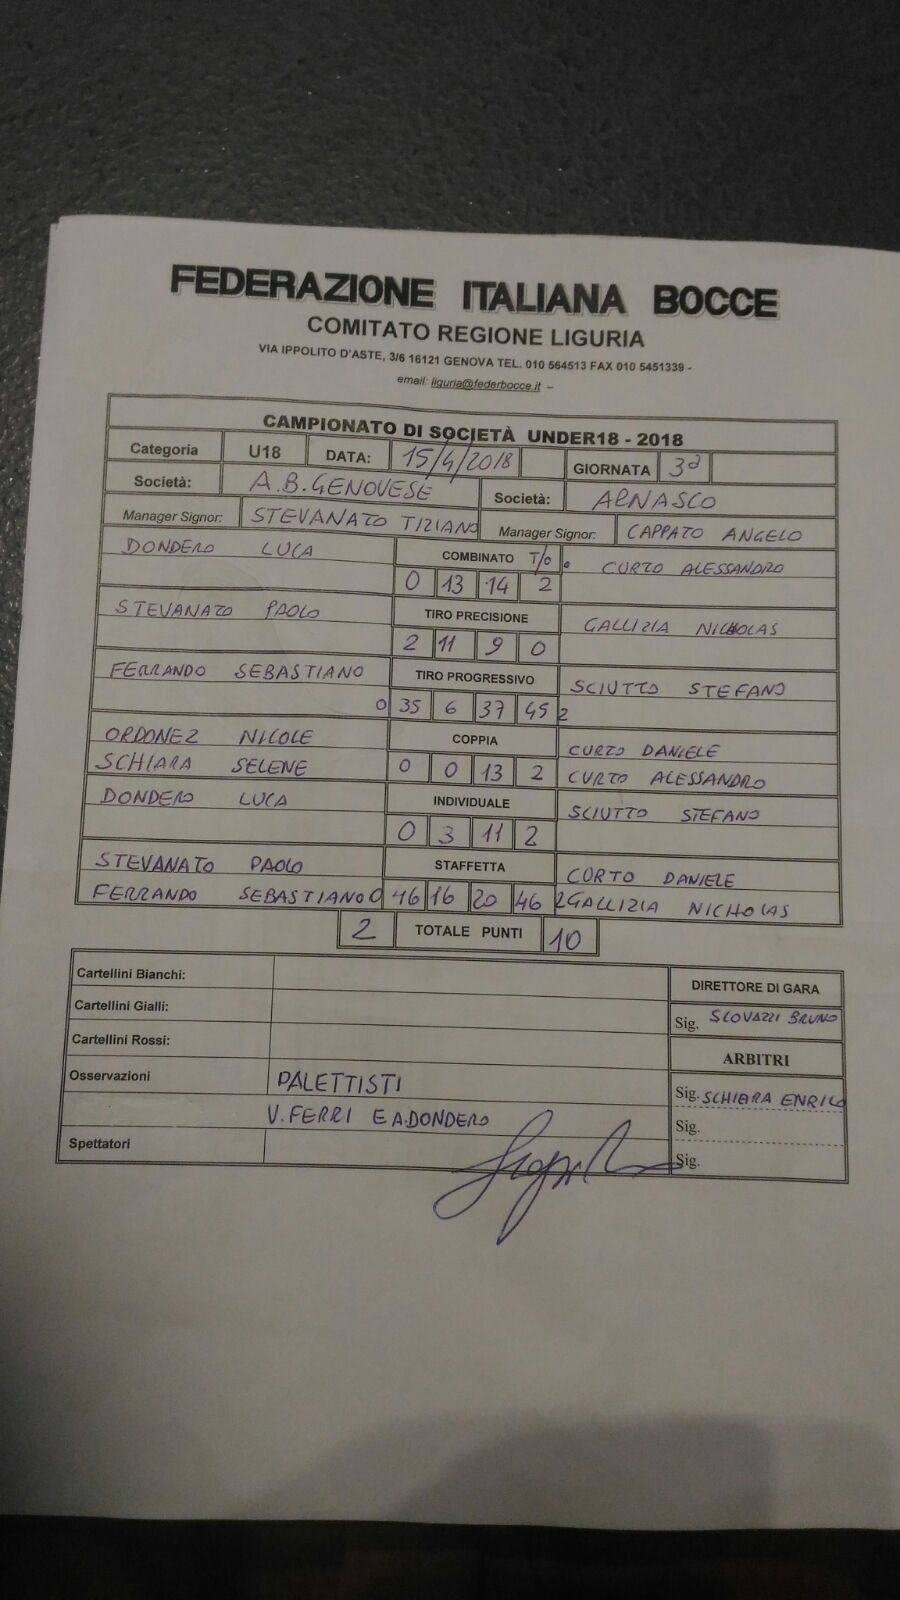 FEDERAZIONE ITALIANA BOCCE
COMITATO REGIONE LIGURIA
VIA IPPOLITO D'ASTE, 3/6 16121 GENOVA TEL. 010 564513 FAX 010 5451339 -
email: liguria@federbocce.it –
CAMPIONATO DI SOCIETÀ UNDER18 - 2018
Categoria U18 DATA: 15/4/2018 GIORNATA 3ª
Società: A.B. GENOVESE Società: ARNASCO
Manager Signor: STEVANATO TIZIANO Manager Signor: CAPPATO ANGELO
DONDERO LUCA COMBINATO T/O CURTO ALESSANDRO
0 13 14 2
STEVANATO PAOLO TIRO PRECISIONE GALLIZIA NICHOLAS
2 11 9 0
FERRANDO SEBASTIANO TIRO PROGRESSIVO SCIUTTO STEFANO
0 35 6 37 45 2
ORDONEZ NICOLE COPPIA CURTO DANIELE
SCHIARA SELENE 0 0 13 2 CURTO ALESSANDRO
DONDERO LUCA INDIVIDUALE SCIUTTO STEFANO
0 3 11 2
STEVANATO PAOLO STAFFETTA CURTO DANIELE
FERRANDO SEBASTIANO 0 46 16 20 46 2 GALLIZIA NICHOLAS
2 TOTALE PUNTI 10
Cartellini Bianchi: DIRETTORE DI GARA
Cartellini Gialli: Sig. SCOVAZZI BRUNO
Cartellini Rossi: ARBITRI
Osservazioni PALETTISTI Sig. SCHIARA ENRICO
V. FERRI E A.DONDERO Sig.
Spettatori Sig.